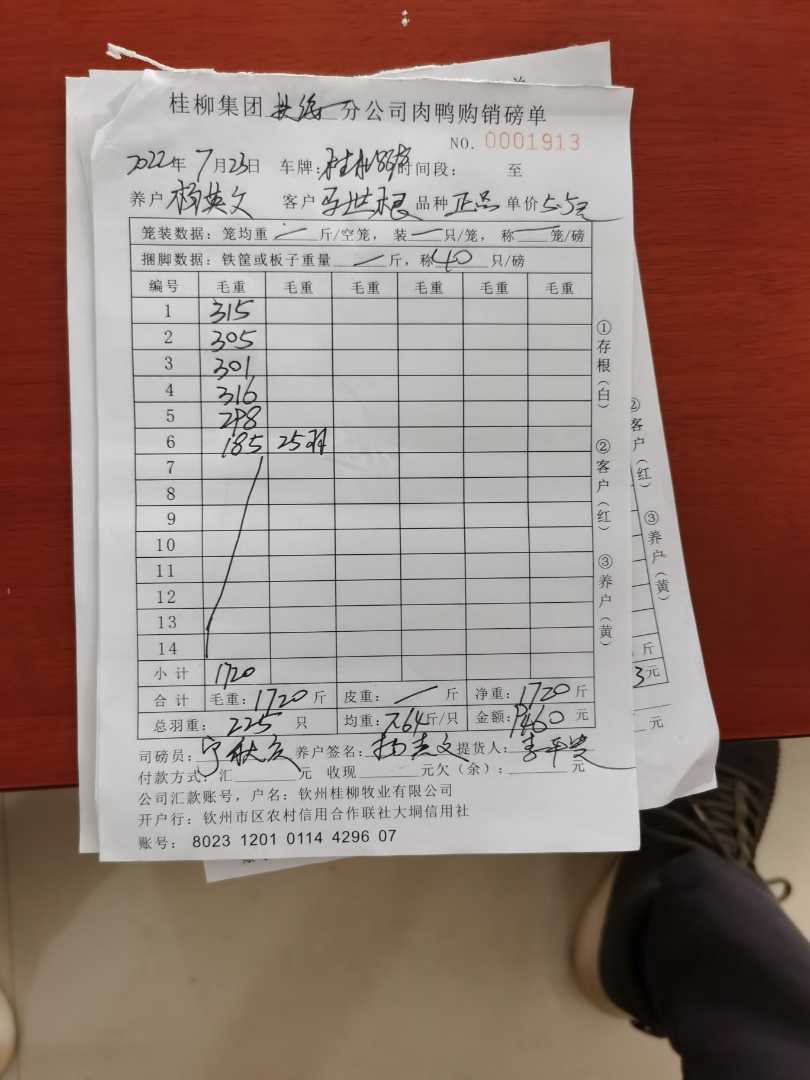 桂柳集团 分公司肉鸭购销磅单
NO. 0001913
2022年 7月23日 车牌: 时间段: 至
养户 杨英文 客户 马世根 品种 正品 单价 5.5元
笼装数据: 笼均重 — 斤/空笼, 装 — 只/笼, 称 — 笼/磅
捆脚数据: 铁筐或板子重量 — 斤, 称 40 只/磅
编号 毛重 毛重 毛重 毛重 毛重 毛重
1 315
2 305
3 301
4 316
5 298
6 185 25羽
7
8
9
10
11
12
13
14
小计 1720
合计 毛重: 1720 斤 皮重: — 斤 净重: 1720 斤
总羽重: 225 只 均重: 7.64斤/只 金额: 9460 元
司磅员: 养户签名: 杨英文 提货人:
付款方式: 汇 元 收现 元欠(余): 元
公司汇款账号, 户名: 钦州桂柳牧业有限公司
开户行: 钦州市区农村信用合作联社大垌信用社
账号: 8023 1201 0114 4296 07
①存根(白)
②客户(红)
③养户(黄)
②客户(红)
③养户(黄)
斤
3元
元